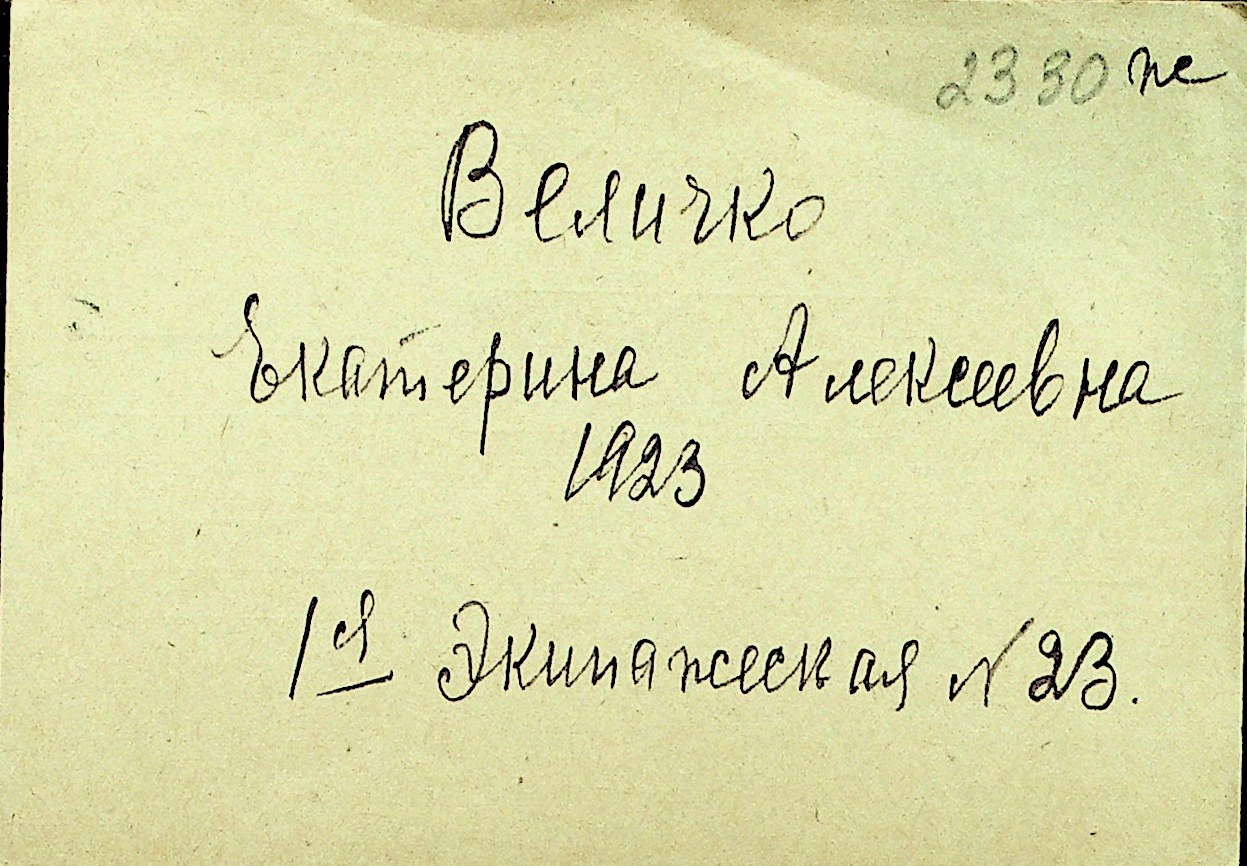 2330 же
Величко
Екатерина Алексеевна
1923
1я Экипажеская N 23.